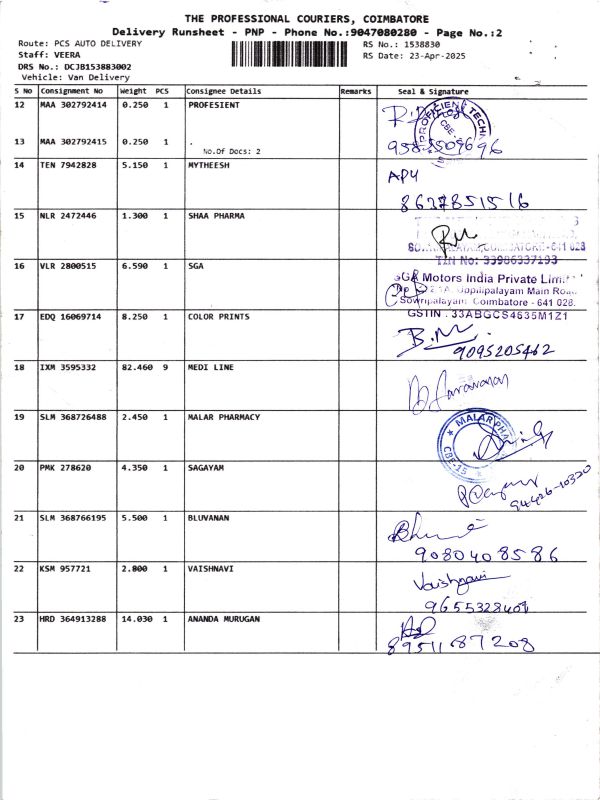 THE PROFESSIONAL COURIERS, COIMBATORE
Delivery Runsheet - PNP - Phone No.:9047080280 - Page No.:2
Route: PCS AUTO DELIVERY
RS No.: 1538830
Staff: VEERA
RS Date: 23-Apr-2025
DRS No.: DCJB153883002
Vehicle: Van Delivery
S No Consignment No Weight PCS Consignee Details Remarks Seal & Signature
12 MAA 302792414 0.250 1 PROFESIENT
PROFICIENT TECH
CBE
13 MAA 302792415 0.250 1 .
No.Of Docs: 2
14 TEN 7942828 5.150 1 MYTHEESH
8637851516
15 NLR 2472446 1.300 1 SHAA PHARMA
COIMBATORE-641 028
TIN No: 33986337193
16 VLR 2800515 6.590 1 SGA
SGA Motors India Private Limit
Uppilipalayam Main Road
Sowripalayam, Coimbatore - 641 028.
GSTIN : 33ABGCS4635M1Z1
17 EDQ 16069714 8.250 1 COLOR PRINTS
B.M
9095205462
18 IXM 3595332 82.460 9 MEDI LINE
19 SLM 368726488 2.450 1 MALAR PHARMACY
MALAR PHA
CBE-15
20 PMK 278620 4.350 1 SAGAYAM
94426-10320
21 SLM 368766195 5.500 1 BLUVANAN
9080408586
22 KSM 957721 2.800 1 VAISHNAVI
Vaishnavi
23 HRD 364913288 14.030 1 ANANDA MURUGAN
8951187208